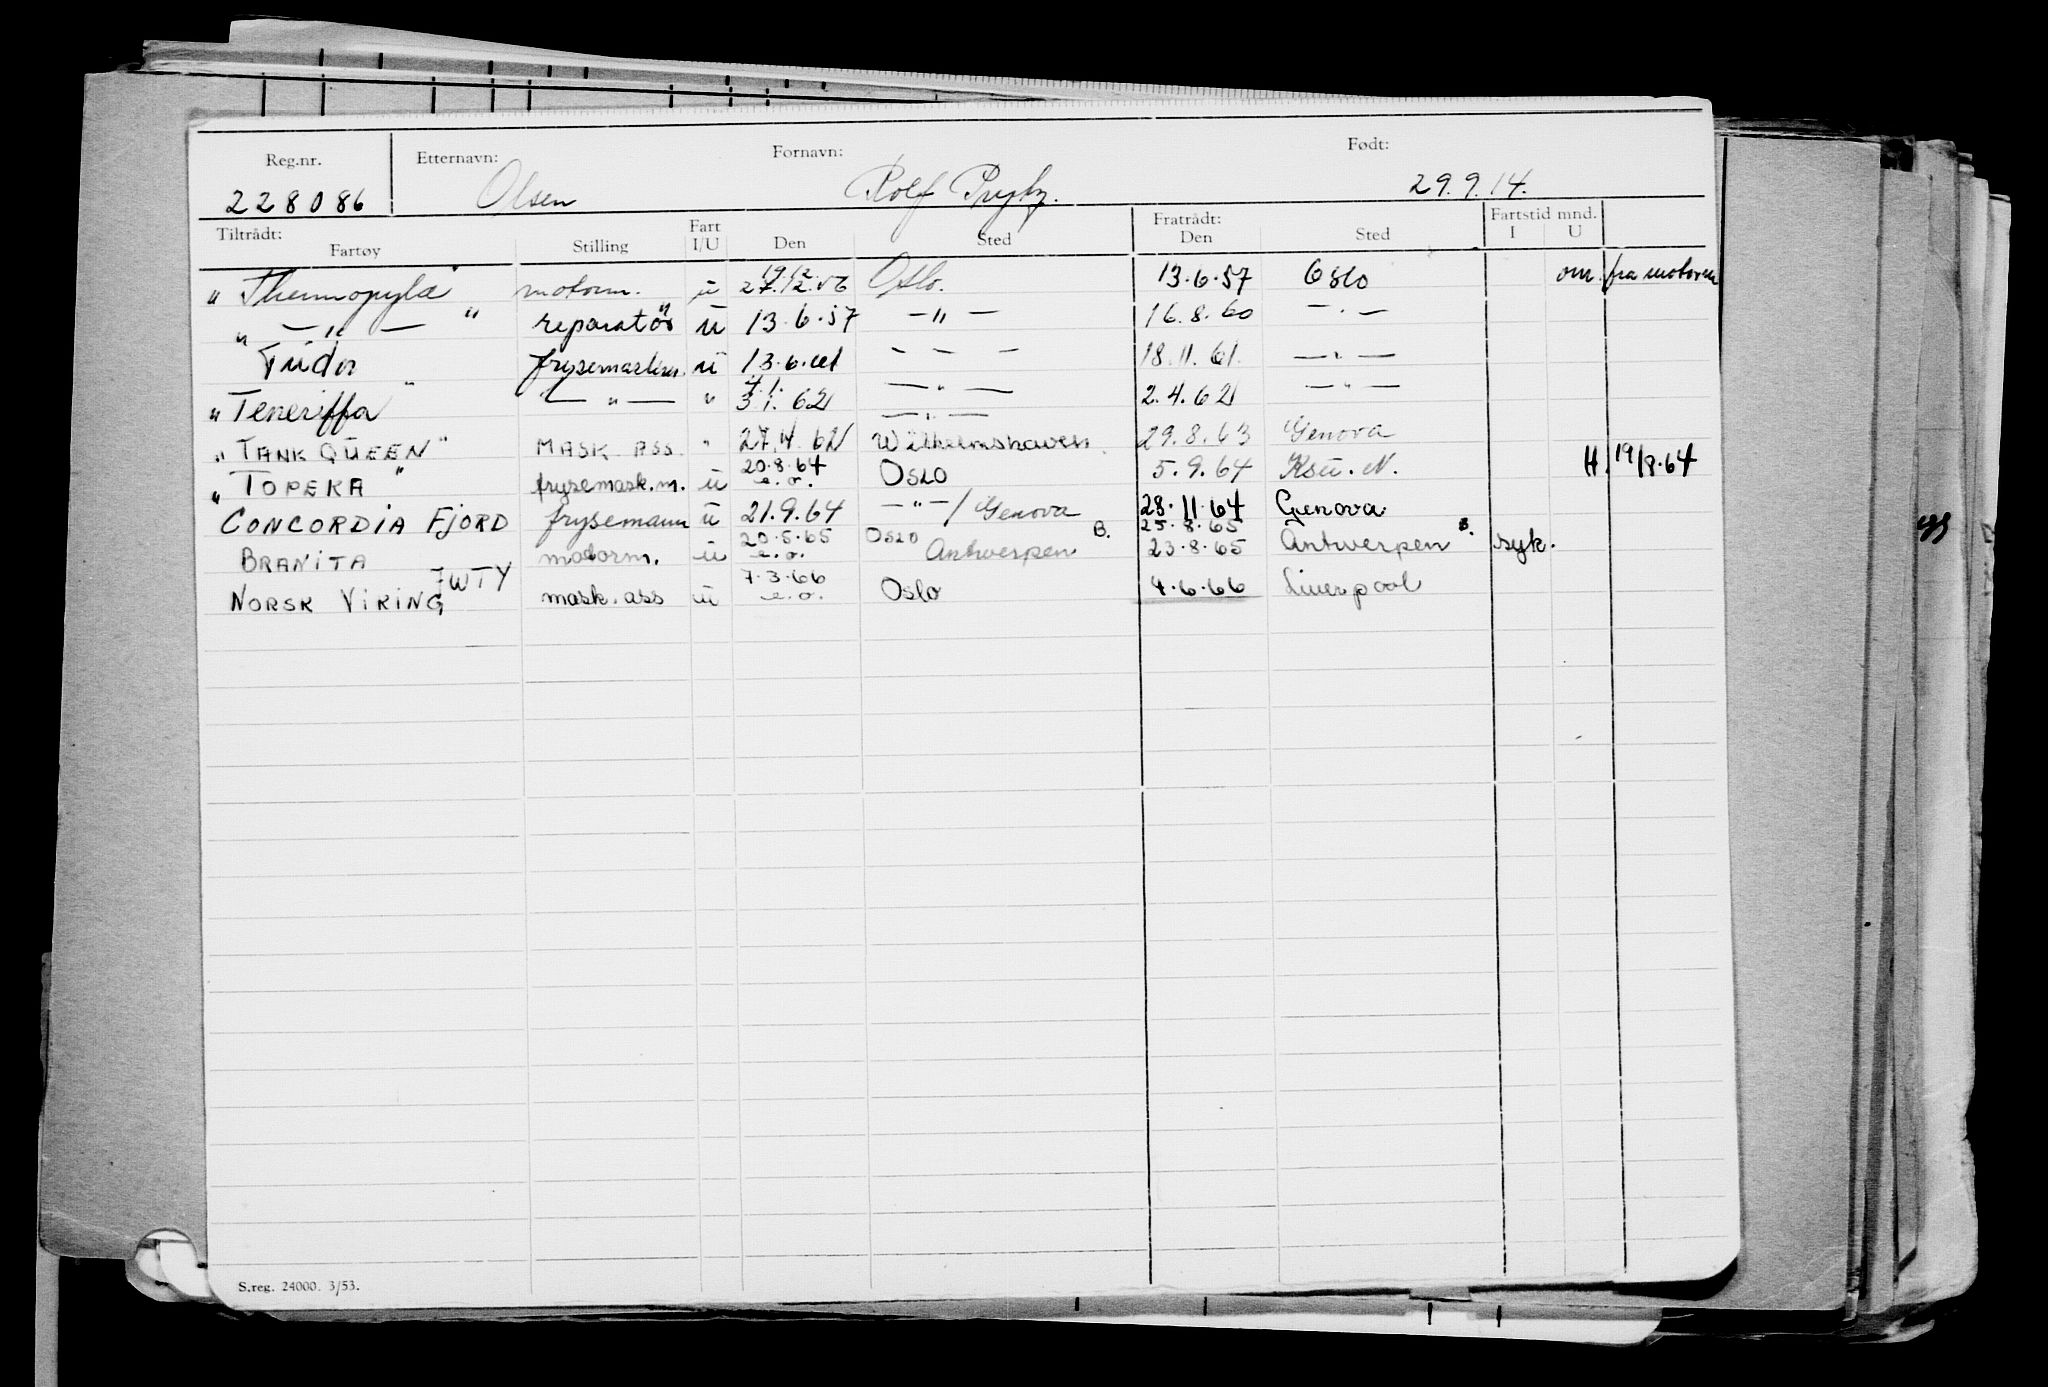 Reg.nr. Etternavn: Fornavn: Født:
228086 Olsen Rolf 29.9.14.
Tiltrådt: Fart Fratrådt: Fartstid mnd.
Fartøy Stilling I/U Den Sted Den Sted I U
19.12
"Thermopylæ" motorm. u 27.12.56 Oslo. 13.6.57 Oslo om. fra motorm
" — " — " reparatør u 13.6.57 — " — 16.8.60 — " —
"Tudor" frysemaskm. u 13.6.61 — " — 18.11.61. — " —
4.1.
"Teneriffa" — " — " 3.1.62 — " — 2.4.62 — " —
— " —
"TANK QUEEN" MASK. ASS. " 27.4.62 Wilhelmshaven. 29.8.63 Genova
20.8.64
"TOPEKA" frysemask.m. u e.o. OSLO 5.9.64 Ksu. N. H. 19/8.64
CONCORDIA FJORD frysemann u 21.9.64 — " — / Genova 28.11.64 Genova
20.5.65 OSLO B. 25.8.65 B.
BRANITA motorm. u e.o. Antwerpen 23.8.65 Antwerpen syk.
JWTY 7.3.66
NORSK VIKING mask.ass u e.o. Oslo 4.6.66 Liverpool
S.reg. 24000. 3/53.